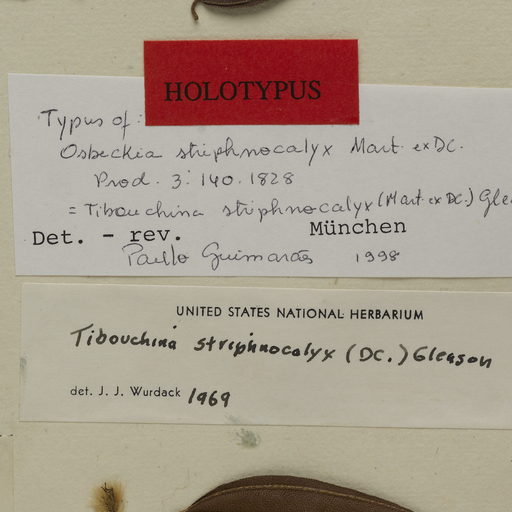 HOLOTYPUS
Typus of:
Osbeckia striphnocalyx Mart. ex DC.
Prod. 3: 140. 1828
= Tibouchina striphnocalyx (Mart. ex DC.) Glea
Det. - rev. München
Paulo Guimarães 1998
UNITED STATES NATIONAL HERBARIUM
Tibouchina striphnocalyx (DC.) Gleason
det. J. J. Wurdack 1969